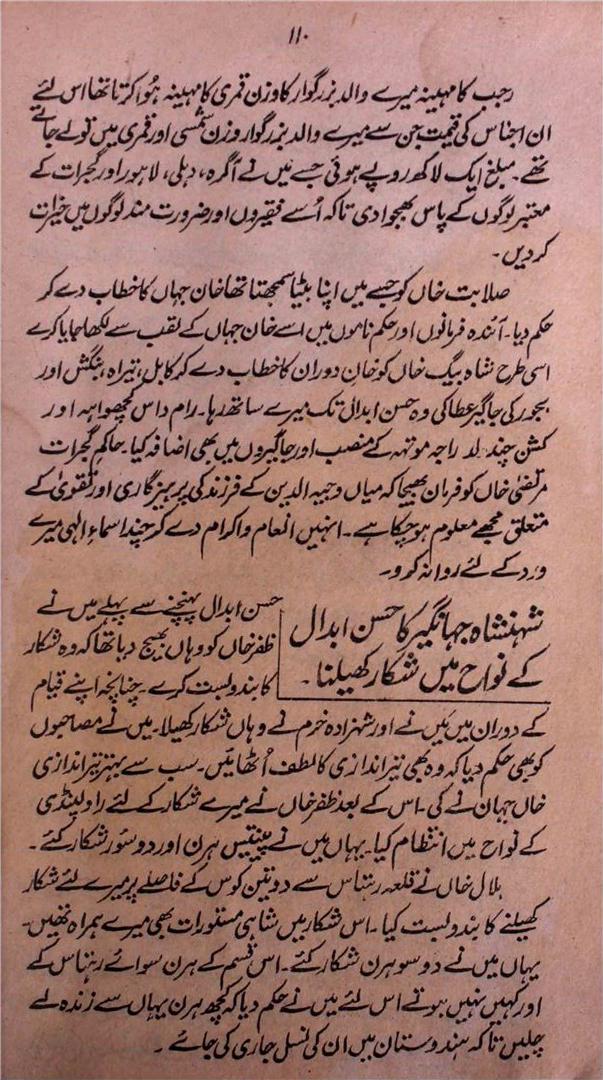 ۱۱۰
رجب کا مہینہ میرے والد بزرگوار کا وزن قمری کا مہینہ ہوا کرتا تھا اس لئے
ان اجناس کی قیمت جن سے میرے والد بزرگوار وزن شمسی اور قمری میں تولے جاتے
تھے۔ مبلغ ایک لاکھ روپے ہوئی جسے میں نے آگرہ، دہلی، لاہور اور گجرات کے
معتبر لوگوں کے پاس بھجوا دی تاکہ اُسے فقیروں اور ضرورت مند لوگوں میں خیرات
کر دیں۔
صلابت خاں کو جسے میں اپنا بیٹا سمجھتا تھا خان جہاں کا خطاب دے کر
حکم دیا۔ آئندہ فرمانوں اور حکم ناموں میں اسے خان جہاں کے لقب سے لکھا جایا کرے
اسی طرح شاہ بیگ خاں کو خان دوران کا خطاب دے کر کابل، تیراہ، بنگش اور
بجور کی جاگیر عطا کی وہ حسن ابدال تک میرے ساتھ رہا۔ رام داس کچھواہہ اور
کشن چند ولد راجہ موتہہ کے منصب اور جاگیروں میں بھی اضافہ کیا۔ حاکم گجرات
مرتضیٰ خاں کو فرمان بھیجا کہ میاں وجیہ الدین کے فرزند کی پرہیزگاری اور تقویٰ کے
متعلق مجھے معلوم ہو چکا ہے۔ انہیں انعام و اکرام دے کر چند اسماء الٰہی میرے
ورد کے لئے روانہ کرو۔
شہنشاہ جہانگیر کا حسن ابدال
کے نواح میں شکار کھیلنا۔
حسن ابدال پہنچنے سے پہلے میں نے
ظفر خاں کو وہاں بھیج دیا تھا کہ وہ شکار
کا بندوبست کرے۔ چنانچہ اپنے قیام
کے دوران میں میں نے اور شہزادہ خرم نے وہاں شکار کھیلا۔ میں نے مصاحبوں
کو بھی حکم دیا کہ وہ بھی تیر اندازی کا لطف اُٹھائیں۔ سب سے بہتر تیر اندازی
خاں جہان نے کی۔ اس کے بعد ظفر خاں نے میرے شکار کے لئے راولپنڈی
کے نواح میں انتظام کیا۔ یہاں میں نے پینتیس ہرن اور دو سؤر شکار کئے۔
ہلال خاں نے قلعہ رہتاس سے دو تین کوس کے فاصلے پر میرے لئے شکار
کھیلنے کا بندوبست کیا۔ اس شکار میں شاہی مستورات بھی میرے ہمراہ تھیں۔
یہاں میں نے دو سو ہرن شکار کئے۔ اس قسم کے ہرن سوائے رہتاس کے
اور کہیں نہیں ہوتے اس لئے میں نے حکم دیا کہ کچھ ہرن یہاں سے زندہ لے
چلیں تاکہ ہندوستان میں ان کی نسل جاری کی جائے۔